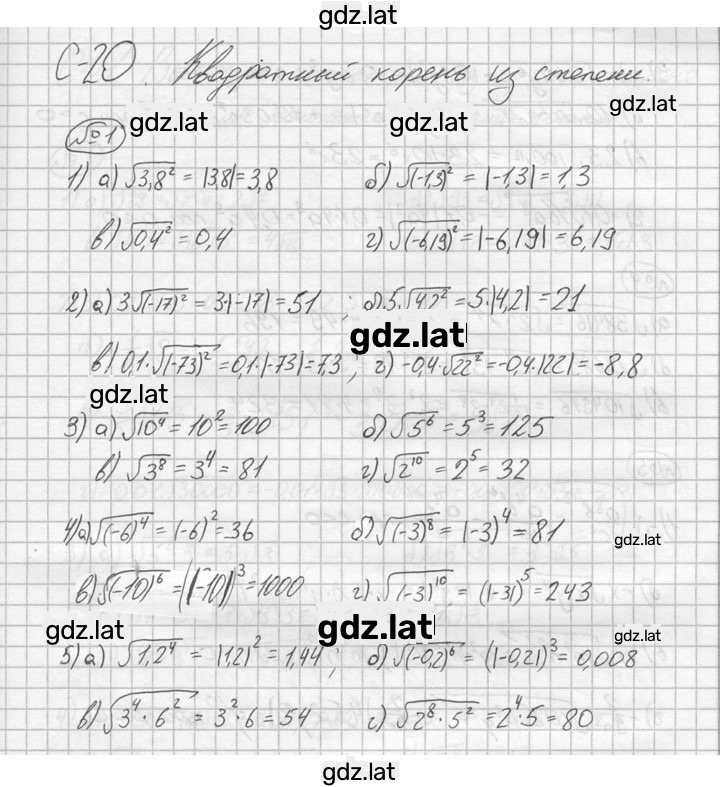 gdz.lat
С-20. Квадратный корень из степени.
gdz.lat
№1 gdz.lat gdz.lat
1) а) √3,8² = |3,8| = 3,8 б) √(-1,3)² = |-1,3| = 1,3
в) √0,4² = 0,4 г) √(-6,19)² = |-6,19| = 6,19
2) а) 3√(-17)² = 3·|-17| = 51 ; б) 5·√4,2² = 5·|4,2| = 21
gdz.lat
в) 0,1·√(-73)² = 0,1·|-73| = 7,3 ; г) -0,4·√22² = -0,4·|22| = -8,8
gdz.lat gdz.lat
3) а) √10⁴ = 10² = 100 б) √5⁶ = 5³ = 125
в) √3⁸ = 3⁴ = 81 г) √2¹⁰ = 2⁵ = 32
4) а) √(-6)⁴ = (-6)² = 36 б) √(-3)⁸ = (-3)⁴ = 81
gdz.lat
в) √(-10)⁶ = (|-10|)³ = 1000 г) √(-3)¹⁰ = (|-3|)⁵ = 243
gdz.lat gdz.lat gdz.lat
5) а) √1,2⁴ = |1,2|² = 1,44 ; б) √(-0,2)⁶ = (|-0,2|)³ = 0,008
в) √3⁴·6² = 3²·6 = 54 г) √2⁸·5² = 2⁴·5 = 80
gdz.lat